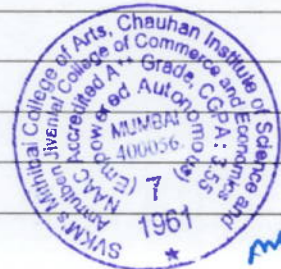 SVKM's Mithibai College of Arts, Chauhan Institute of Science and
Amrutben Jivanlal College of Commerce and Economics
NAAC Accredited A++ Grade, CGPA: 3.55
(Empowered Autonomous)
MUMBAI
400056.
7
1961
*